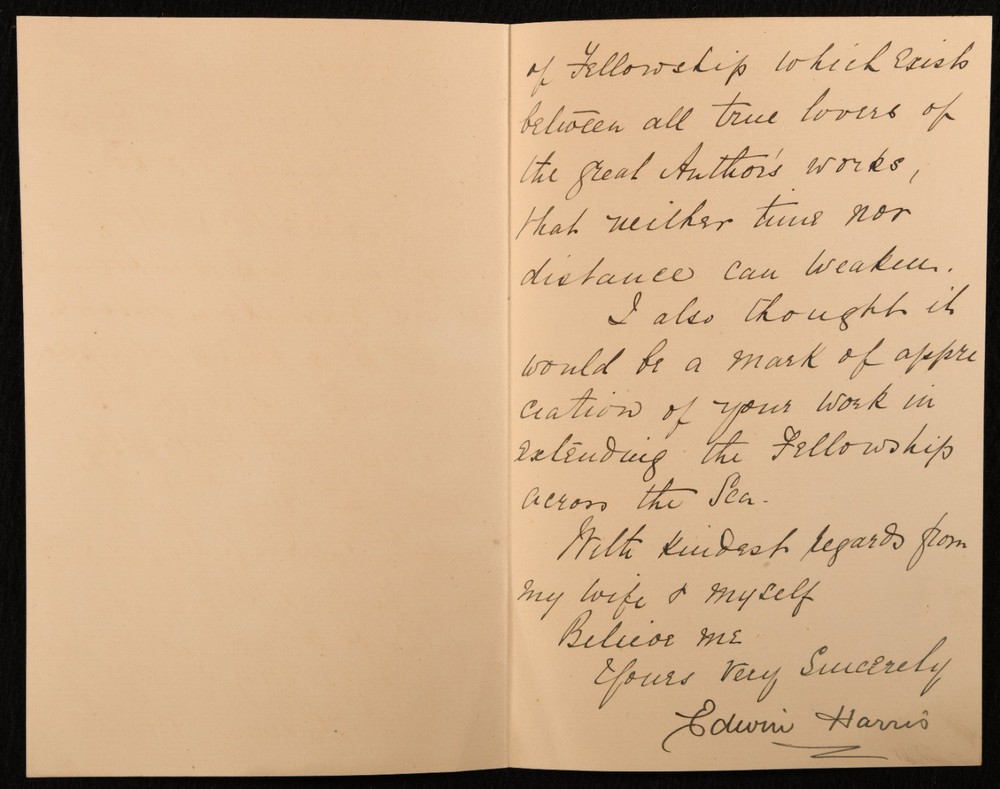 of Fellowship which exists
between all true lovers of
the great Author's works,
that neither time nor
distance can weaken.
I also thought it
would be a mark of appre
ciation of your work in
extending the Fellowship
across the Sea.
With kindest regards from
my wife & myself
Believe me
Yours Very Sincerely
Edwin Harris